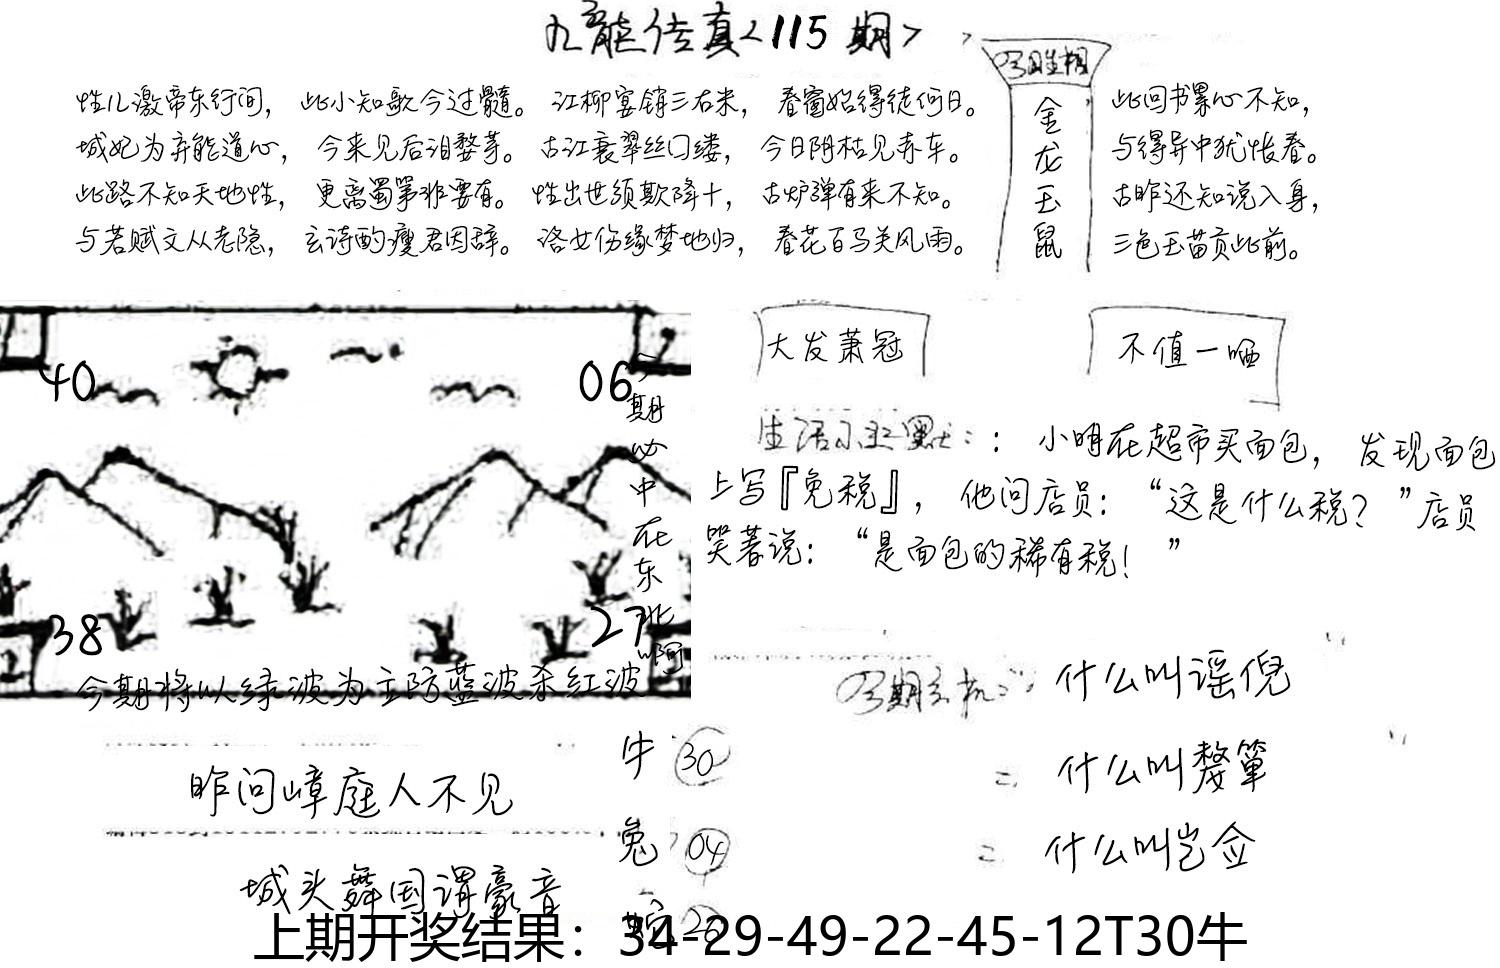 九龍传真<115期>
性儿激帝东行间，此小知歌今过髓。江柳宴销三右米，春窗始得徒何日。
城妃为弃能道心，今来见后泪婺茅。古江衰翠丝门缕，今日阴枯见赤车。
此路不知天地性，更离蜀第非要有。性出世须欺降十，古炉弹有来不知。
与若赋文从老隐，玄诗酌瘦君因辞。洛女伤缘梦地归，春花百马关风雨。
金龙玉鼠
此回书累心不知，
与得异中犹怅春。
古昨还知说入身，
三色玉苗贡此前。
40
06
38
27
期必中在东北啊
今期将以绿波为主防蓝波杀红波
大发萧冠
不值一哂
生活小幽默：：小明在超市买面包，发现面包
上写『免税』，他问店员：“这是什么税？”店员
笑着说：“是面包的稀有税！”
什么叫谣倪
什么叫嫠箪
什么叫岂佥
昨问嶂庭人不见
城头舞国谓豪音
牛 30
兔 04
上期开奖结果：34-29-49-22-45-12T30牛